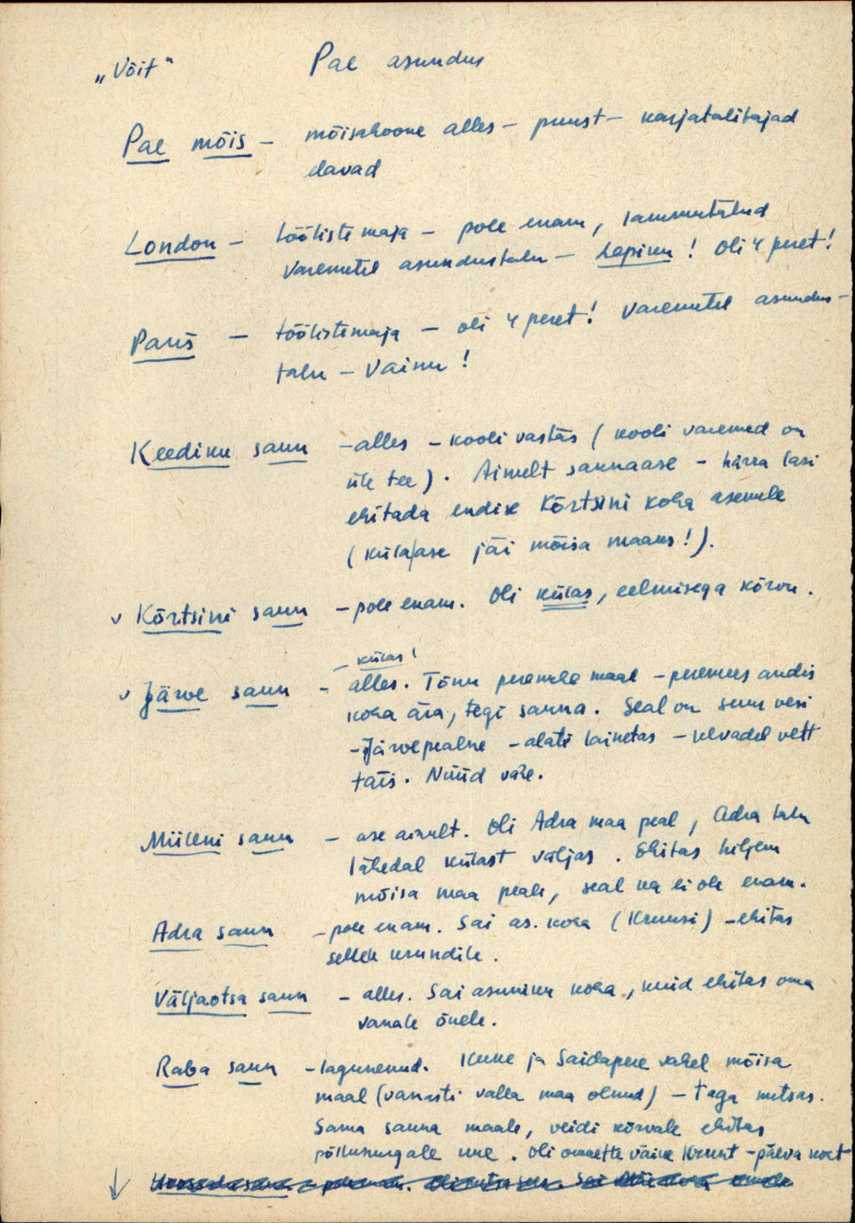 „Võit" Pae asundus
Pae mõis – mõisahoone alles – puust – karjatalitajad
elavad
London – tööliste maja – pole enam, lammutatud
Varemetel asundustalu – Lepiku! Oli 4 peret!
Pariis – töölistemaja – oli 4 peret! Varemetel asundus-
talu – Vainu!
Keediku saun – alles – kooli vastas (kooli varemed on
üle tee). Ainult saunaase – härra lasi
ehitada endise Kõrtsini koha asemele
(külaase jäi mõisa maaks!).
v Kõrtsini saun – pole enam. Oli külas, eelmisega kõrvu.
– külas!
v Järve saun – alles. Tõnu peremehe maal – peremees andis
koha ära, tegi sauna. Seal on suur vesi
– Järvepealne – alati lainetas – kevadel vett
täis. Nüüd vähe.
Miileni saun – ase ainult. Oli Adra maa peal, Adra talu
lähedal külast väljas. Ehitas hiljem
mõisa maa peale, seal ka ei ole enam.
Adra saun – pole enam. Sai as. koha (Kruusi) – ehitas
sellele krundile.
Väljaotsa saun – alles. Sai asuniku koha, kuid ehitas oma
vanale õuele.
Raba saun – lagunenud. Kuke ja Saidapere vahel mõisa
maal (vanasti valla maa olnud) – taga metsas.
Sama sauna maale, veidi kõrvale ehitas
põllunurgale uue. Oli omaette väike krunt – päeva koht